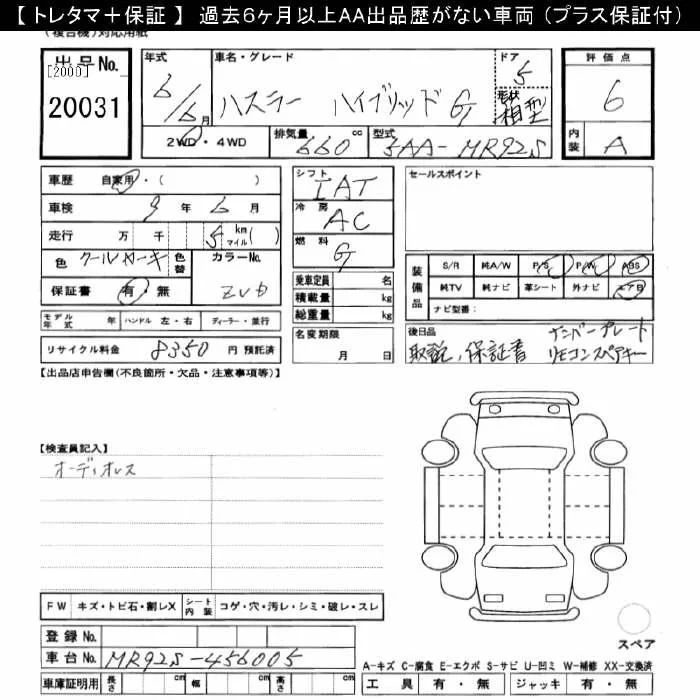 【 トレタマ＋保証 】 過去６ヶ月以上ＡＡ出品歴がない車両（プラス保証付）
(複合機)対応用紙
出品No.
[2000]
20031
年式
6/6月
車名・グレード
ハスラー ハイブリッド G
ドア
5
形状
箱型
評価点
6
内装
A
2WD・4WD
排気量
660 cc
型式
5AA-MR92S
車歴 自家用・( )
車検 9 年 6 月
走行 万 千 5 km マイル( )
色 クールカーキ 色替
カラーNo.
ZVD
保証書 有・無
モデル年式 年 ハンドル 左・右 ディーラー・並行
リサイクル料金 8350 円 預託済
シフト
IAT
冷房
AC
燃料
G
乗車定員 名
積載量 kg
総重量 kg
名変期限
月 日
セールスポイント
装備品
S/R 純A/W P/S P/W ABS
純TV 純ナビ 革シート 外ナビ エアB
ナビ型番:
後日品
ナンバープレート
取説、保証書 リモコンスペアキー
【出品店申告欄(不良箇所・欠品・注意事項等)】
【検査員記入】
オーディオレス
FW キズ・トビ石・割レX シート内装 コゲ・穴・汚レ・シミ・破レ・スレ
登録No.
車台No. MR92S-456005
車庫証明用 長さ cm 幅 cm 高さ cm
スペア
A-キズ C-腐食 E-エクボ S-サビ U-凹ミ W-補修 XX-交換済
工具 有・無 ジャッキ 有・無